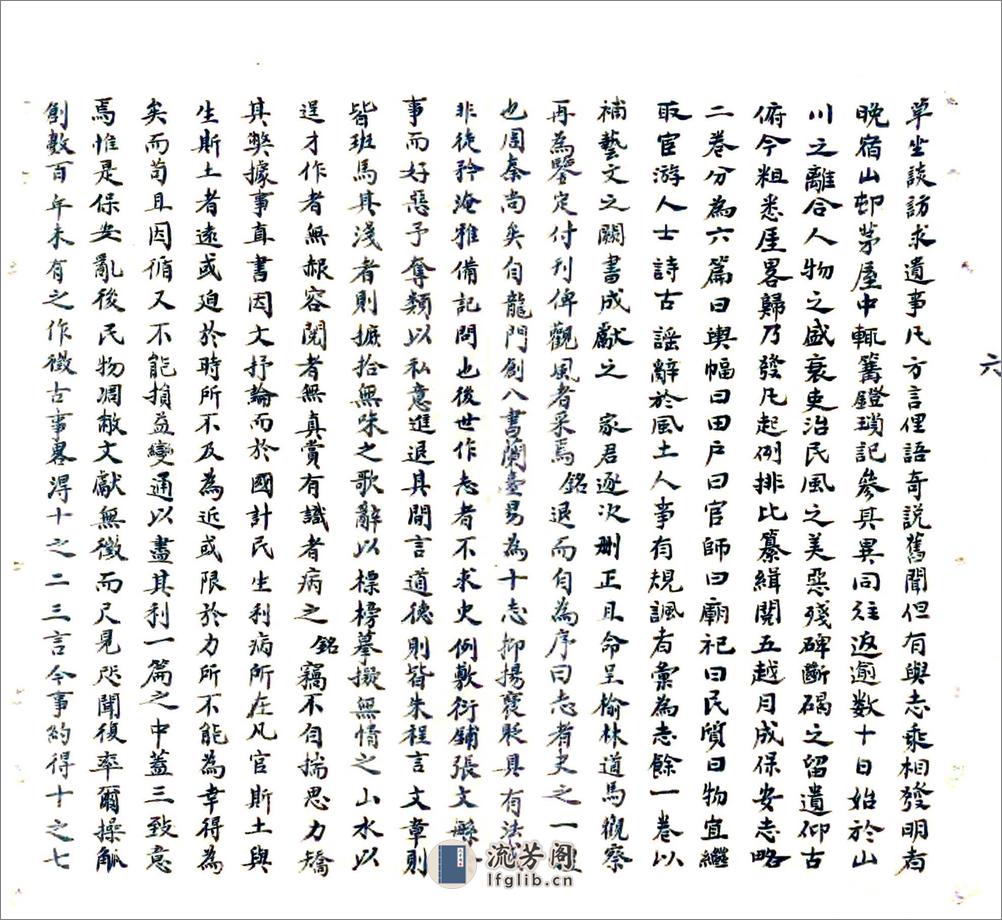 六
草坐談訪求遺事凡方言俚語奇説舊聞但有與志乘相發明者
晚宿山邨茅屋中輒篝鐙瑣記參其異同往返逾數十日始於山
川之離合人物之盛衰吏治民風之美惡殘碑斷碣之留遺仰古
俯今粗悉厓畧歸乃發凡起例排比纂緝閱五越月成保安志略
二卷分為六篇曰輿幅曰田戶曰官師曰廟祀曰民質曰物宜繼
取宦游人士詩古謡辭於風土人事有規諷者彙為志餘一卷以
補藝文之闕書成獻之 家君逐次刪正且命呈榆林道馬觀察
再為鑒定付刊俾觀風者采焉 銘退而自為序曰志者史之一
也周秦尚矣自龍門創八書蘭臺易為十志抑揚褒貶具有法
非徒矜淹雅備記問也後世作志者不求史例敷衍鋪張文縣
事而好惡予奪類以私意進退其間言道德則皆朱程言文章則
皆班馬其淺者則摭拾無味之歌辭以標榜摹擬無情之山水以
逞才作者無赧容閱者無真賞有識者病之 銘竊不自揣思力矯
其弊據事直書因文抒論而於國計民生利病所在凡官斯土與
生斯土者遠或迫於時所不及為近或限於力所不能為幸得為
矣而苟且因循又不能損益變通以盡其利一篇之中蓋三致意
焉惟是保安亂後民物凋敝文獻無徵而尺見咫聞復率爾操觚
創數百年未有之作徵古事畧得十之二三言今事約得十之七
流芳阁
lfglib.cn